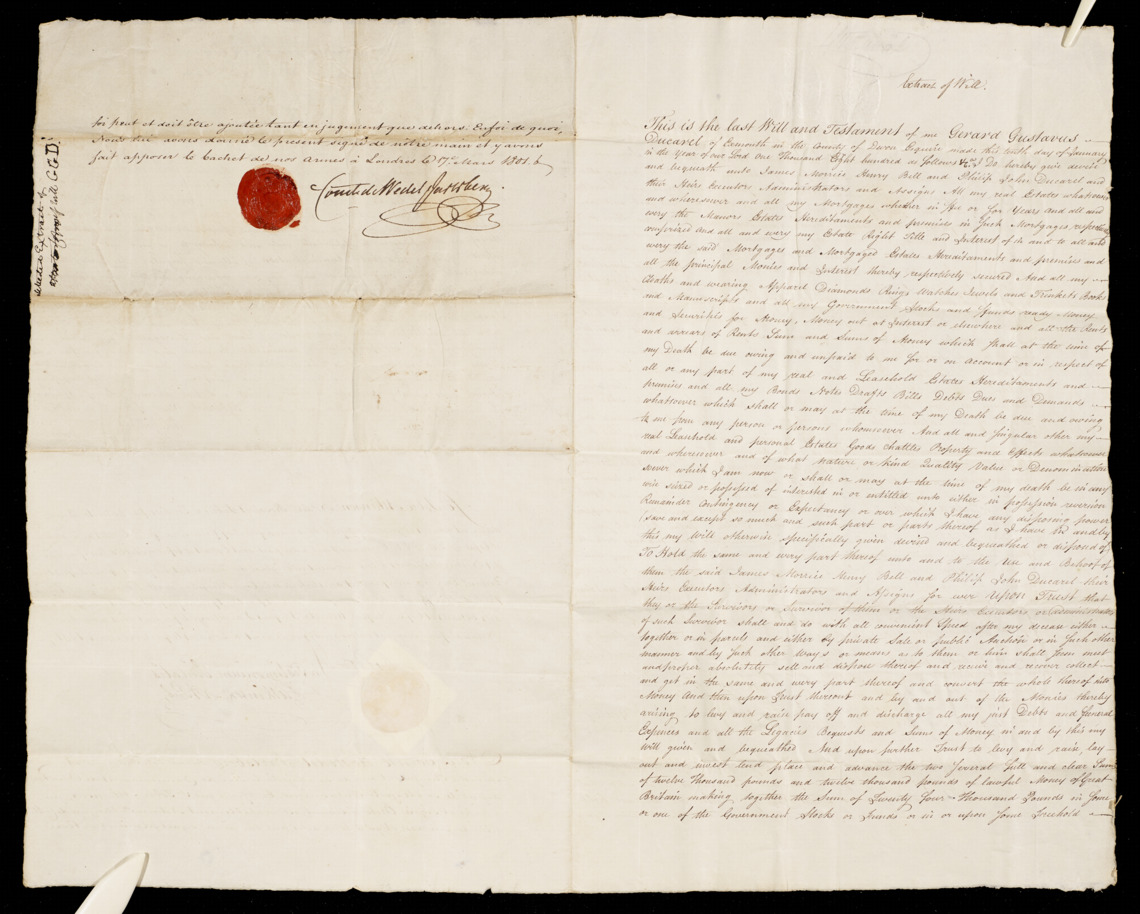 foi peut et doit être ajoutée tant en jugement que dehors. En foi de quoi,
Nous lui avons donné le present signé de nôtre main et y avons
fait apposer le Cachet de nos armes à Londres le 7. Mars 1801.
Comte de Wedel Jarlsberg
selected Extract of
G.D.
Extract of Will.
This is the last Will and Testament of me Gerard Gustavus
Ducarel of Exmouth in the County of Devon Esquire made this tenth day of January
in the Year of our Lord One Thousand Eight hundred as follows (vizt) I Do hereby give devise
and bequeath unto James Morrice Henry Bell and Philip John Ducarel and
their Heirs Executors Administrators and Assigns All my real Estates whatsoever
and wheresoever and all my Mortgages whether in fee or for Years and all and
every the Manors Estates Hereditaments and premises in such Mortgages respectively
comprized And all and every my Estate Right Title and Interest of in and to all and
every the said Mortgages and Mortgaged Estates Hereditaments and premises and
all the principal Monies and Interest thereby respectively secured And all my
Cloaths and wearing Apparel Diamonds Rings Watches Jewels and Trinkets Books
and Manuscripts and all my Government Stocks and Funds ready Money
and Securities for Money, Money out at Interest or elsewhere and all the Rents
and arrears of Rents Sum and Sums of Money which shall at the time of
my Death be due owing and unpaid to me for or on account or in respect of
all or any part of my real and Leasehold Estates Hereditaments and
premises and all my Bonds Notes Drafts Bills Debts Dues and Demands
whatsoever which shall or may at the time of my Death be due and owing
to me from any person or persons whomsoever And all and singular other my
real Leasehold and personal Estates Goods Chattles Property and Effects whatsoever
and wheresoever and of what Nature or kind Quality Value or Denomination
soever which I am now or shall or may at the time of my death be in any
wise seized or possessed of interested in or entitled unto either in possession reversion
Remainder Contingency or Expectancy or over which I have any disposing power
(save and except so much and such part or parts thereof as I have in and by
this my Will otherwise specifically given devised and bequeathed or disposed of)
To Hold the same and every part thereof unto and to the Use and Behoof of
them the said James Morrice Henry Bell and Philip John Ducarel their
Heirs Executors Administrators and Assigns for ever Upon Trust that
they or the Survivors or Survivor of them or the Heirs Executors or Administrators
of such Survivor shall and do with all convenient Speed after my decease either
together or in parcels and either by private Sale or public Auction or in such other
manner and by such other Ways or means as to them or him shall seem meet
and proper absolutely sell and dispose thereof and receive and recover collect
and get in the same and every part thereof and convert the whole thereof into
Money And then upon Trust thereout and by and out of the Monies thereby
arising to levy and raise pay off and discharge all my just Debts and funeral
Expences and all the Legacies Bequests and Sums of Money in and by this my
Will given and bequeathed And upon further Trust to levy and raise, lay
out and invest lend place and advance the two several full and clear Sums
of twelve Thousand pounds and twelve thousand pounds of lawful Money of Great
Britain making together the Sum of Twenty Four Thousand Pounds in some
or one of the Government Stocks or Funds or in or upon some Freehold